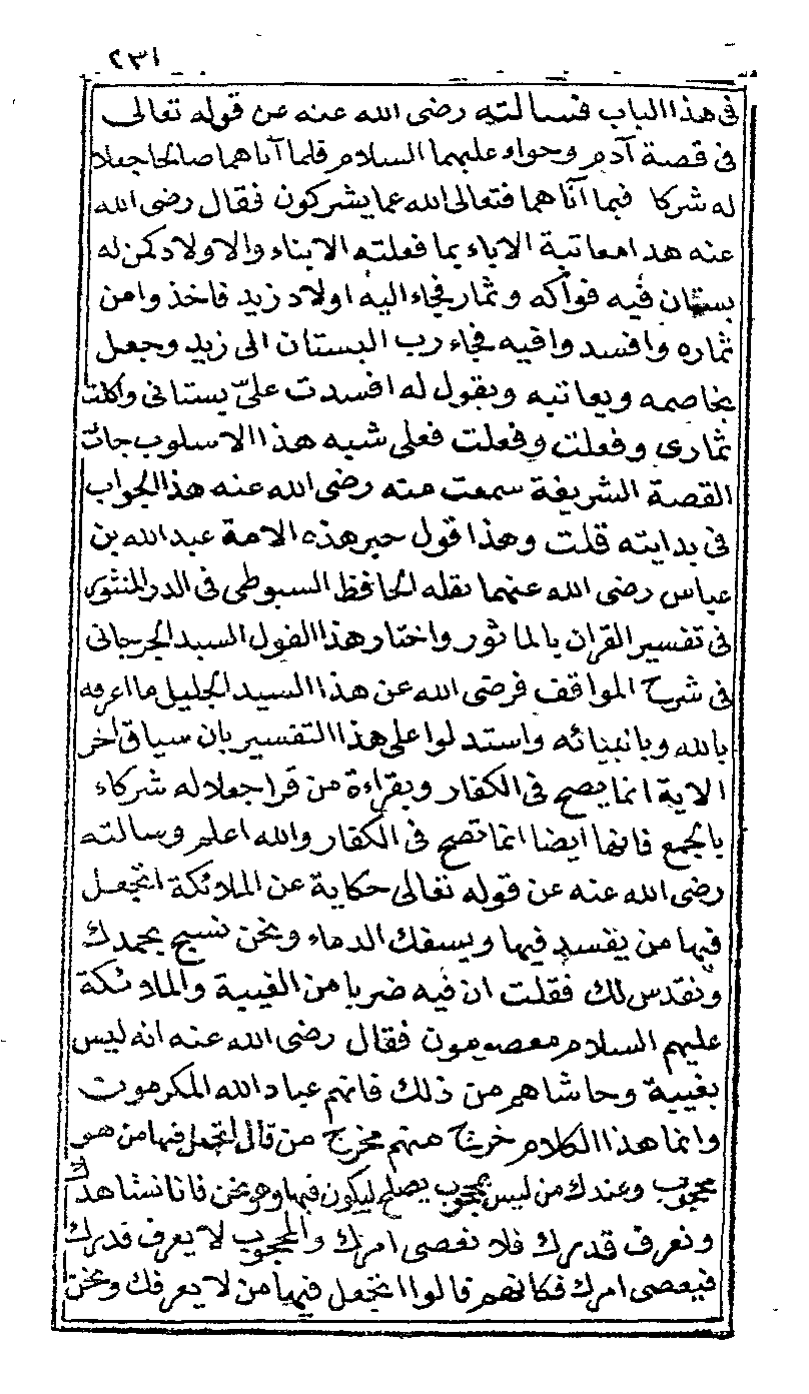 ٢٣١
في هذا الباب فسالته رضى الله عنه عن قوله تعالى
في قصة آدم وحواء عليهما السلام فلما آتاهما صالحا جعلا
له شركا فيما آتاهما فتعالى الله عما يشركون فقال رضى الله
عنه هذا معاتبة الاباء بما فعلته الابناء والاولاد كمن له
بستان فيه فواكه وثمار فجاء اليه اولاد زيد فاخذوا من
ثماره وافسدوا فيه فجاء رب البستان الى زيد وجعل
يخاصمه ويعاتبه ويقول له افسدت علىّ بستانى واكلت
ثمارى وفعلت وفعلت فعلى شبه هذا الاسلوب جات
القصة الشريفة سمعت منه رضى الله عنه هذا الجواب
في بدايته قلت وهذا قول حبر هذه الامة عبد الله بن
عباس رضى الله عنهما نقله الحافظ السيوطى في الدر المنثور
في تفسير القران بالماثور واختار هذا القول السيد الجرجانى
في شرح المواقف فرضى الله عن هذا السيد الجليل ما اعرفه
بالله وبانبيائه واستدلوا على هذا التفسير بان سياق اخر
الاية انما يصح في الكفار وبقراءة من قرا جعلا له شركاء
بالجمع فانها ايضا انما تصح في الكفار والله اعلم وسالته
رضى الله عنه عن قوله تعالى حكاية عن الملائكة اتجعل
فيها من يفسد فيها ويسفك الدماء ونحن نسبح بحمدك
ونقدس لك فقلت ان فيه ضربا من الغيبة والملائكة
عليهم السلام معصومون فقال رضى الله عنه انه ليس
بغيبة وحاشاهم من ذلك فانهم عباد الله المكرموت
وانما هذا الكلام خرج منهم مخرج من قال اتجعل فيها من هو
محجوب وعندك من ليس بمحجوب يصلح ليكون فيها وهو نحن فانا نشاهدك
ونعرف قدرك فلا نعصى امرك والمحجوب لا يعرف قدرك
فيعصى امرك فكانهم قالوا اتجعل فيها من لا يعرفك ونحن